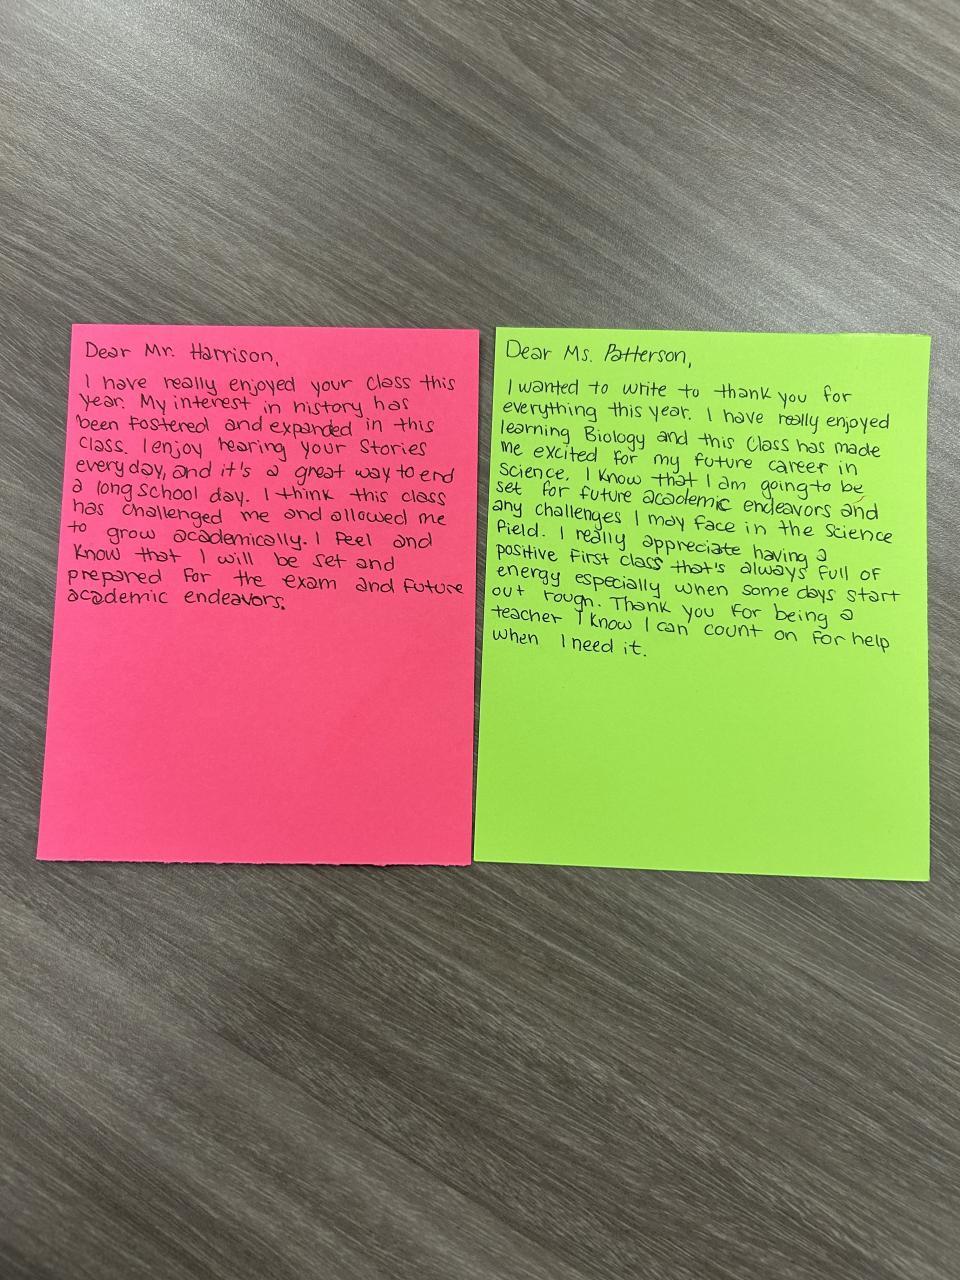 Dear Mr. Harrison,
I have really enjoyed your class this
year. My interest in history has
been fostered and expanded in this
class. I enjoy hearing your stories
everyday, and it's a great way to end
a long school day. I think this class
has challenged me and allowed me
to grow academically. I feel and
know that I will be set and
prepared for the exam and future
academic endeavors.
Dear Ms. Patterson,
I wanted to write to thank you for
everything this year. I have really enjoyed
learning Biology and this class has made
me excited for my future career in
science. I know that I am going to be
set for future academic endeavors and
any challenges I may face in the science
field. I really appreciate having a
positive first class that's always full of
energy especially when some days start
out rough. Thank you for being a
teacher I know I can count on for help
when I need it.